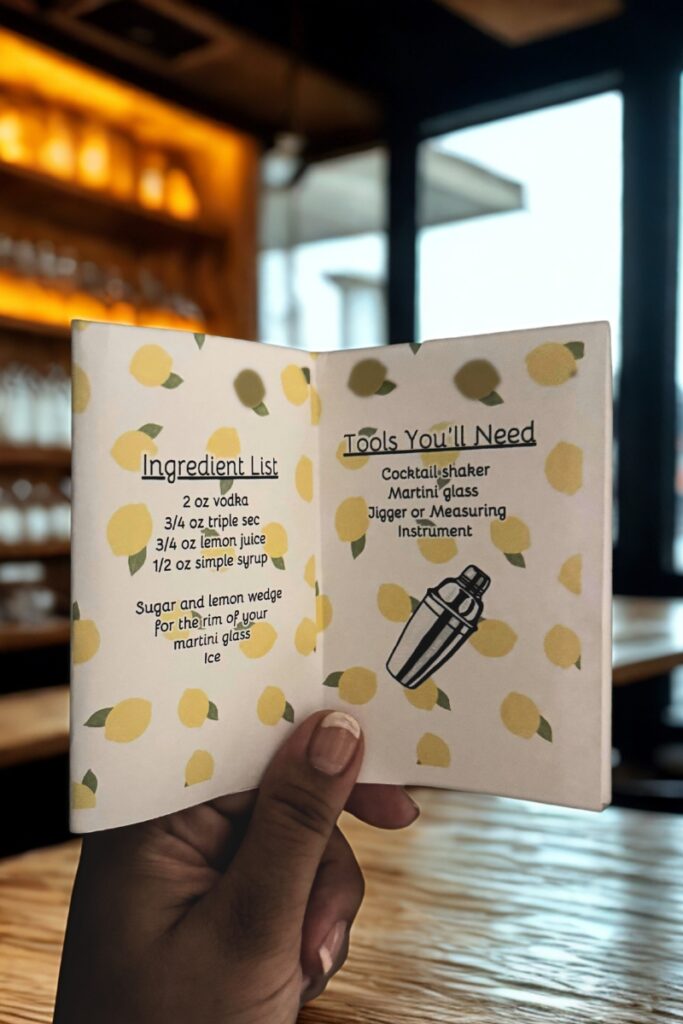 Ingredient List
2 oz vodka
3/4 oz triple sec
3/4 oz lemon juice
1/2 oz simple syrup
Sugar and lemon wedge
for the rim of your
martini glass
Ice
Tools You'll Need
Cocktail shaker
Martini glass
Jigger or Measuring
Instrument